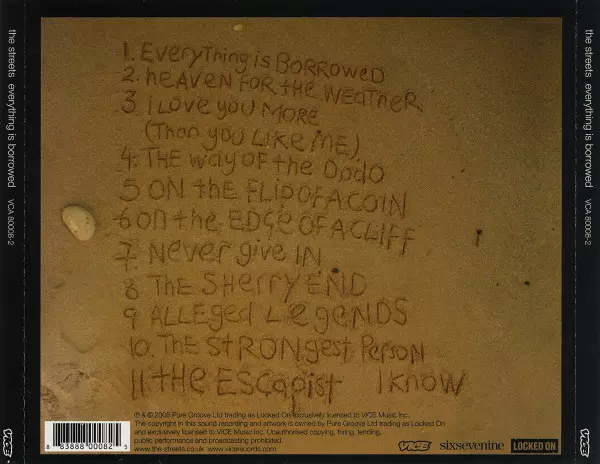 the streets everything is borrowed VCA 80008-2
1. EveryThing is BORROWED
2. HEAVEN FOR the WEATHER
3 I LOVE you MORE
(Than you LIKE ME)
4. THE way OF the DODO
5 ON the FLIP OF A COIN
6 ON the EDGE OF A CLIFF
7. Never give IN
8 THE SHerry END
9 ALLEGed LegeNDS
10. The STRONgesT Person
I Know
11 the ESCApist
℗ & © 2008 Pure Groove Ltd trading as Locked On exclusively licensed to VICE Music Inc.
The copyright in this sound recording and artwork is owned by Pure Groove Ltd trading as Locked On
and exclusively licensed to VICE Music Inc. Unauthorised copying, hiring, lending,
public performance and broadcasting prohibited.
www.the-streets.co.uk www.vicerecords.com
8 83888 00082 3
VICE sixsevenine LOCKED ON
VICE
the streets everything is borrowed VCA 80008-2
VICE